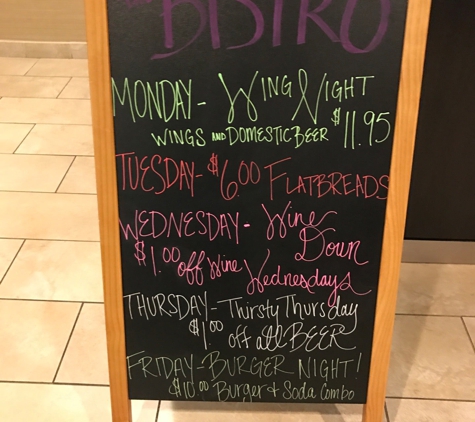 BISTRO
MONDAY- Wing Night
WINGS AND DOMESTIC BEER $11.95
TUESDAY- $6.00 FLATBREADS
WEDNESDAY- Wine
Down
$1.00 off Wine Wednesdays
THURSDAY- Thirsty Thursday
$1.00 off all BEER
FRIDAY- BURGER NIGHT!
$10.00 Burger & Soda Combo